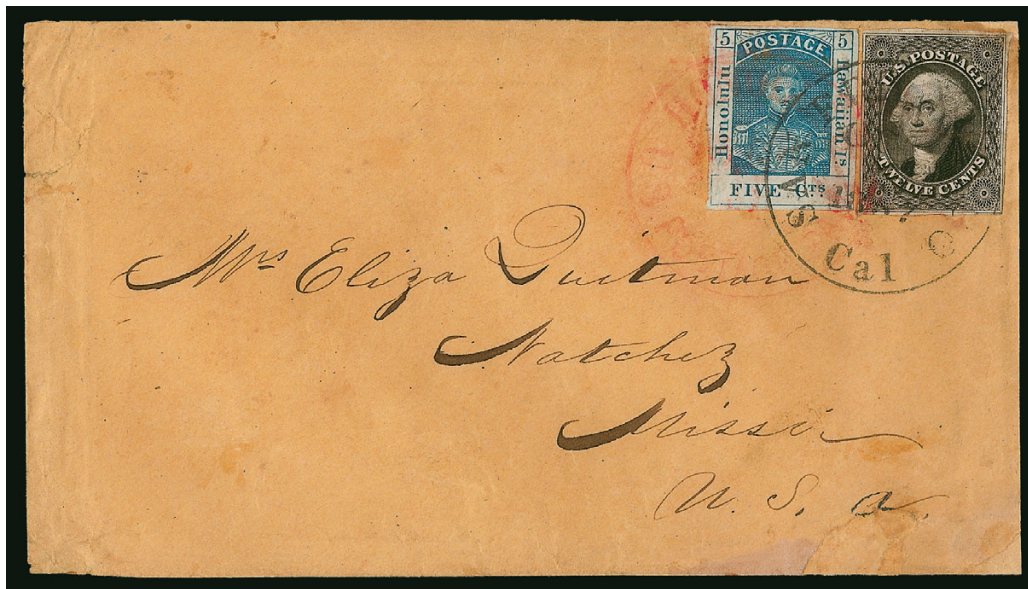 5 POSTAGE 5
Honolulu
Hawaiian Is
FIVE Cts
U.S. POSTAGE
TWELVE CENTS
SAN
Cal
Mrs Eliza Quitman
Natchez
Missi
U. S. a.